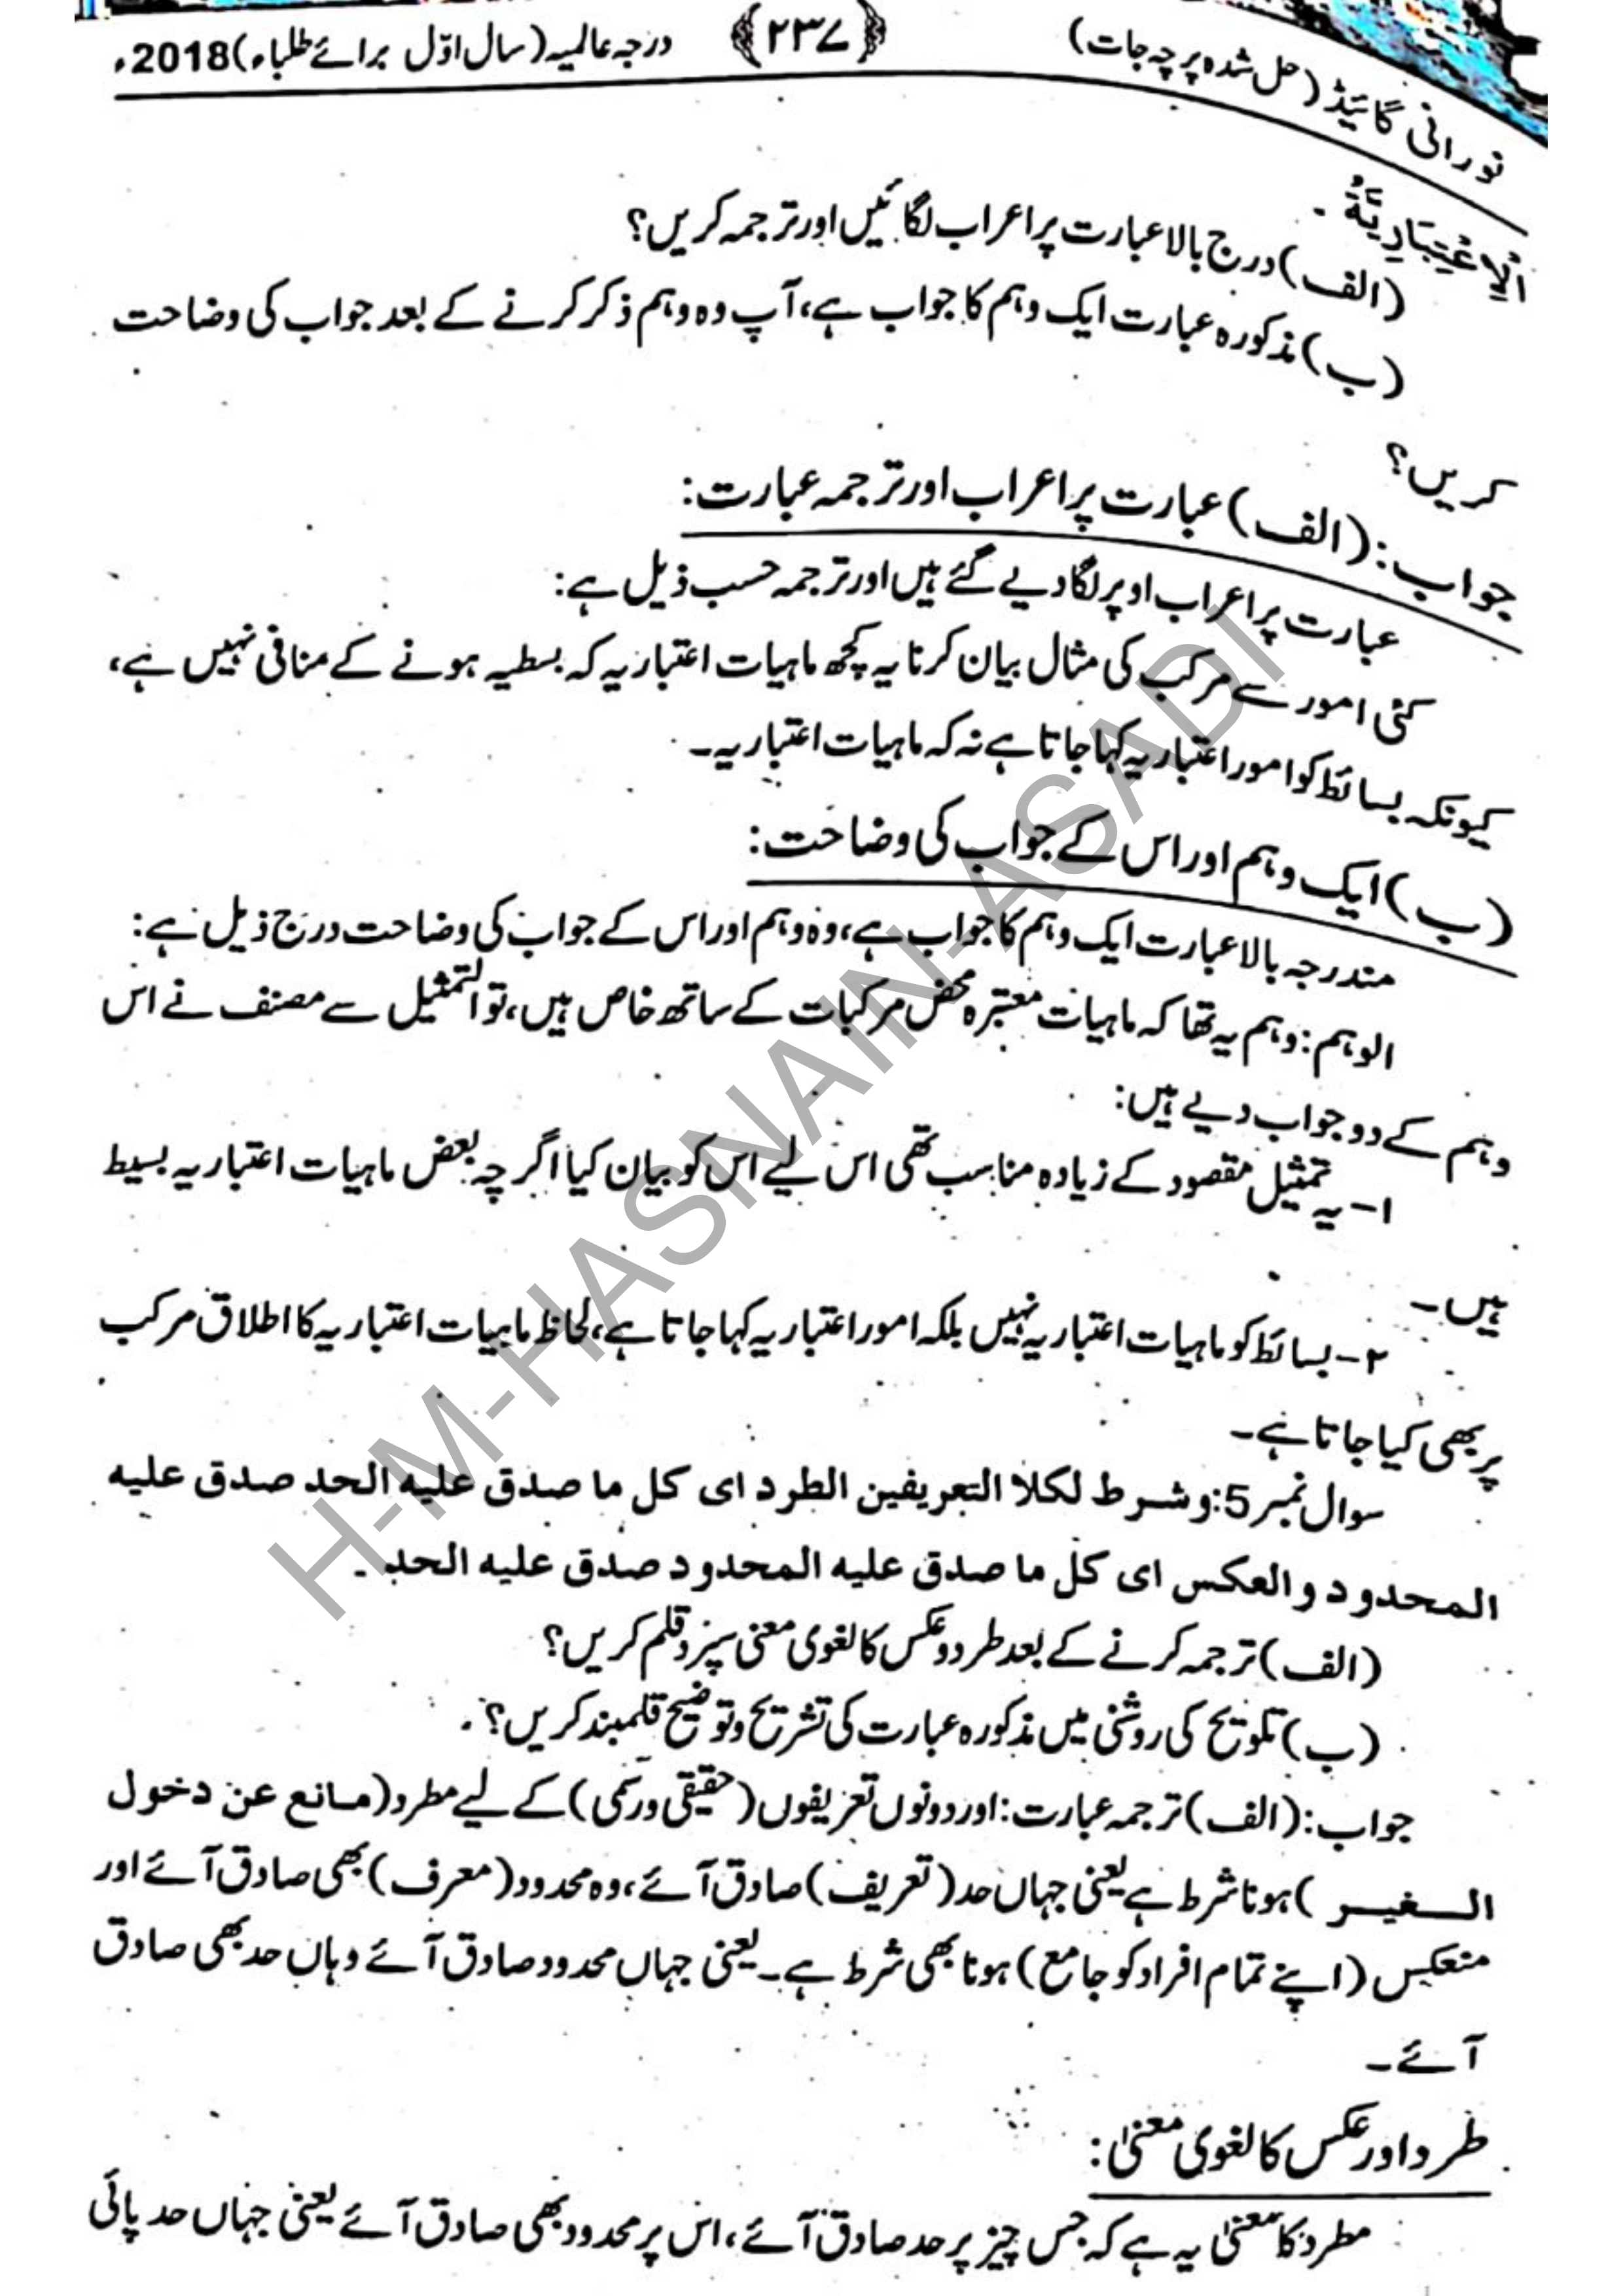 نورانی گائیڈ (حل شدہ پرچہ جات) ﴿۲۳۷﴾ درجہ عالمیہ (سال اوّل برائے طلباء) 2018ء
الْاِعْتِبَارِيَّةُ ۔
(الف) درج بالا عبارت پر اعراب لگائیں اور ترجمہ کریں؟
(ب) مذکورہ عبارت ایک وہم کا جواب ہے، آپ وہ وہم ذکر کرنے کے بعد جواب کی وضاحت
کریں؟
جواب: (الف) عبارت پر اعراب اور ترجمہ عبارت:
عبارت پر اعراب اوپر لگا دیے گئے ہیں اور ترجمہ حسب ذیل ہے:
کئی امور سے مرکب کی مثال بیان کرنا یہ کچھ ماہیات اعتباریہ کہ بسطیہ ہونے کے منافی نہیں ہے،
کیونکہ بسائط کو امور اعتباریہ کہا جاتا ہے نہ کہ ماہیات اعتباریہ۔
(ب) ایک وہم اور اس کے جواب کی وضاحت:
مندرجہ بالا عبارت ایک وہم کا جواب ہے، وہ وہم اور اس کے جواب کی وضاحت درج ذیل ہے:
الوہم: وہم یہ تھا کہ ماہیات معتبرہ محض مرکبات کے ساتھ خاص ہیں، تو التمثیل سے مصنف نے اس
وہم کے دو جواب دیے ہیں:
۱- یہ تمثیل مقصود کے زیادہ مناسب تھی اس لیے اس کو بیان کیا اگر چہ بعض ماہیات اعتباریہ بسیط
ہیں۔
۲- بسائط کو ماہیات اعتباریہ نہیں بلکہ امور اعتباریہ کہا جاتا ہے، لحاظ ماہیات اعتباریہ کا اطلاق مرکب
پر بھی کیا جاتا ہے۔
سوال نمبر 5: وشرط لكلا التعريفين الطرد اى كل ما صدق عليه الحد صدق عليه
المحدود والعكس اى كل ما صدق عليه المحدود صدق عليه الحد ۔
(الف) ترجمہ کرنے کے بعد طرد وعکس کا لغوی معنی سپرد قلم کریں؟
(ب) تلویح کی روشنی میں مذکورہ عبارت کی تشریح وتوضیح قلمبند کریں؟
جواب: (الف) ترجمہ عبارت: اور دونوں تعریفوں (حقیقی ورسمی) کے لیے مطرد (مانع عن دخول
الغیر) ہونا شرط ہے یعنی جہاں حد (تعریف) صادق آئے، وہ محدود (معرف) بھی صادق آئے اور
منعکس (اپنے تمام افراد کو جامع) ہونا بھی شرط ہے۔ یعنی جہاں محدود صادق آئے وہاں حد بھی صادق
آئے۔
طرد اور عکس کا لغوی معنیٰ:
مطرد کا معنیٰ یہ ہے کہ جس چیز پر حد صادق آئے، اس پر محدود بھی صادق آئے یعنی جہاں حد پائی
H-M-HASNAIN-ASADI